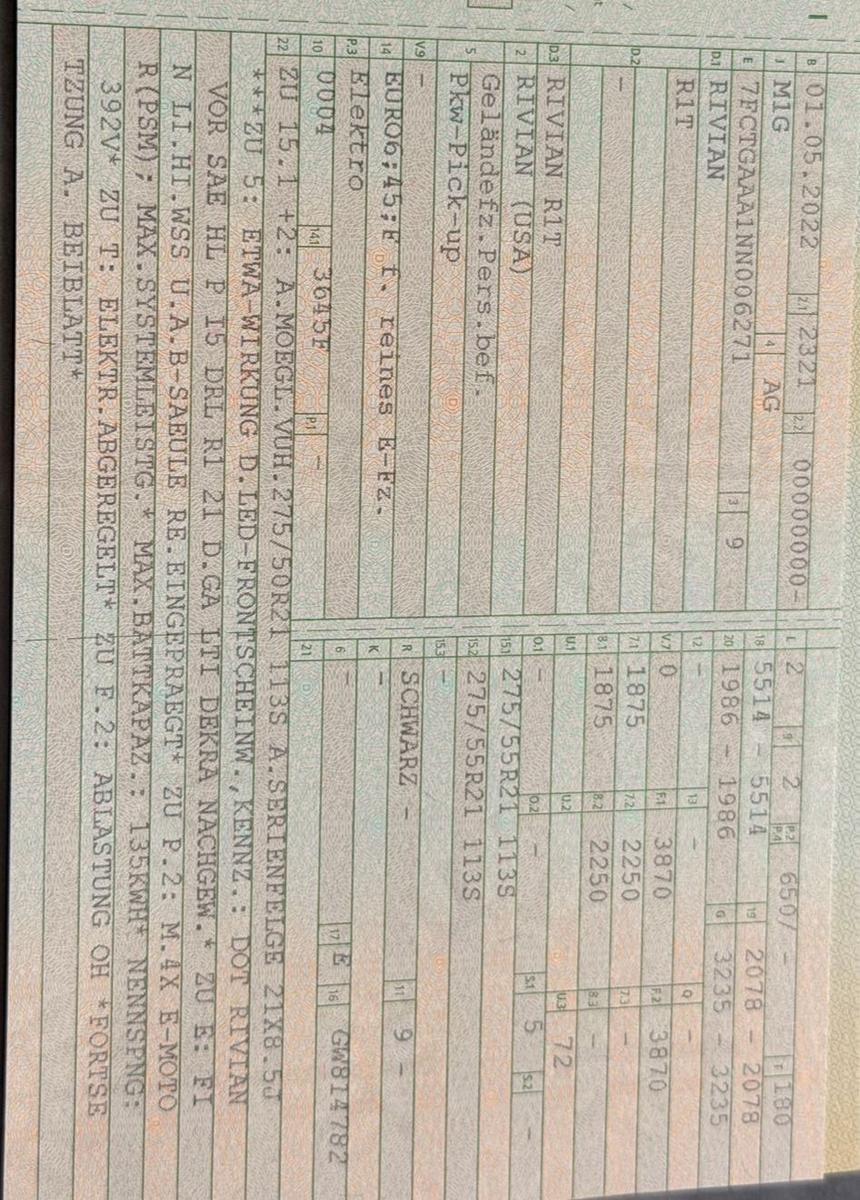 B 01.05.2022 2.1 2321 2.2 00000000-
J M1G 4 AG
E 7FCTGAAA1NN006271 3 9
D.1 RIVIAN
R1T
D.2 -
D.3 RIVIAN R1T
2 RIVIAN (USA)
5 Geländefz.Pers.bef.
Pkw-Pick-up
V.9 -
14 EURO6;45;F f. reines E-Fz.
P.3 Elektro
10 0004 14.1 3645F P.1 -
L 2 9 2 P.2 P.4 650/ - T 180
18 5514 - 5514 19 2078 - 2078
20 1986 - 1986 G 3235 - 3235
12 - 13 - Q -
V.7 0 F.1 3870 F.2 3870
7.1 1875 7.2 2250 7.3 -
8.1 1875 8.2 2250 8.3 -
U.1 U.2 U.3 72
O.1 - O.2 - S.1 5 S.2 -
15.1 275/55R21 113S
15.2 275/55R21 113S
15.3 -
R SCHWARZ - 11 9 -
K -
6 - 17 E 16 GW814782
21
22 ZU 15.1 +2: A.MOEGL.VUH.275/50R21 113S A.SERIENFELGE 21X8.5J
***ZU 5: ETWA-WIRKUNG D.LED-FRONTSCHEINW.,KENNZ.: DOT RIVIAN
VOR SAE HL P I5 DRL R1 21 D.GA LTI DEKRA NACHGEW.* ZU E: FI
N LI.HI.WSS U.A.B-SAEULE RE.EINGEPRAEGT* ZU P.2: M.4X E-MOTO
R(PSM); MAX.SYSTEMLEISTG.* MAX.BATTKAPAZ.: 135KWH* NENNSPNG:
392V* ZU T: ELEKTR.ABGEREGELT* ZU F.2: ABLASTUNG OH *FORTSE
TZUNG A. BEIBLATT*